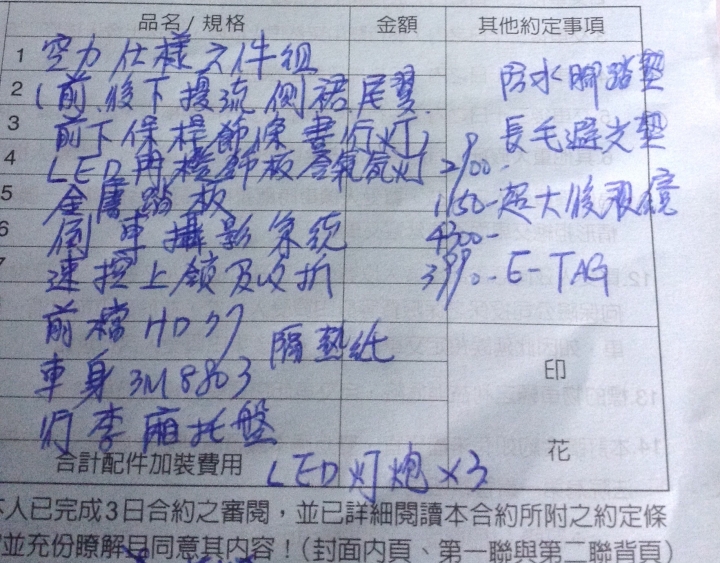 品名/規格 金額 其他約定事項
1 空力仕樣六件組
2 (前、後下擾流、側裙、尾翼
防水腳踏墊
3 前下保桿飾條、晝行灯)
長毛避光墊
4 LED冊檔飾板含氣氛灯 2900-
5 金屬踏板 1150-
超大後視鏡
6 倒車攝影系統 4300-
7 速控上鎖及收折 3990-
E-TAG
前檔HD77
隔熱紙
車身3M8803
行李廂托盤
印
花
合計配件加裝費用
LED灯炮×3
本人已完成3日合約之審閱,並已詳細閱讀本合約所附之約定條
並充份瞭解且同意其內容!(封面內頁、第一聯與第二聯背頁)